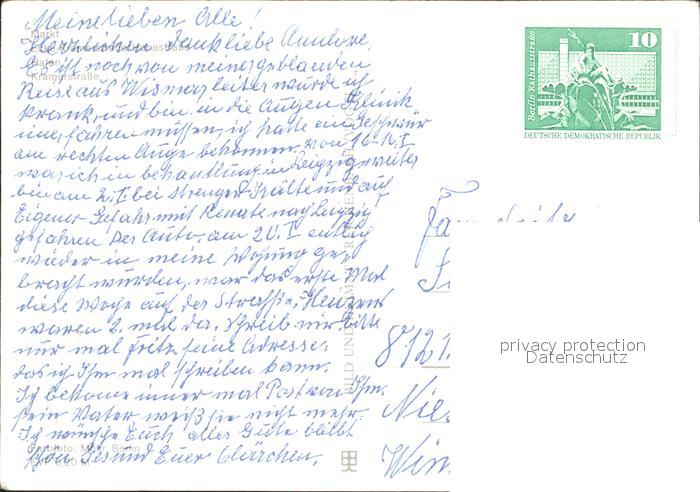 Meine lieben Alle!
Herzlichen Dank liebe
Es ist noch von meiner geblanden
Reise aus Wismar leiter wurde ich
krank, und bin in die Augen Klinik
müssen, ich hatte ein Geschwür
am rechten Auge bekommen von 10-16.I
war ich in behandlung in Leipzig weiter
bin am 2.I bei strenger Kälte und auf
Eigener Gefahr mit Renate nach Leipzig
gefahren Per Auto, am 20.I
wieder in meine Wohung ge,
bracht wurden, war das erste Mal
diese Woche auf der Straße,
waren 2. mal da. Schreib mir bitte
nur mal Fritz seine Adresse,
das ich Ihm mal schreiben kann.
Ich bekome immer mal Post von Ihm.
sein Vater weiß sie nicht mehr,
Ich wünsche Euch alles Gute bleibt
Gesund Euer Clärchen.
Markt
Hafen
Krämerstraße
Berlin
BILD UND HEIMAT
10
Berlin, Rathausstraße
DEUTSCHE DEMOKRATISCHE REPUBLIK
Fa
8121
Nie
Win
privacy protection
Datenschutz